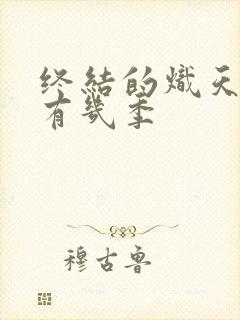 终结的炽天
有几季
穆古鲁